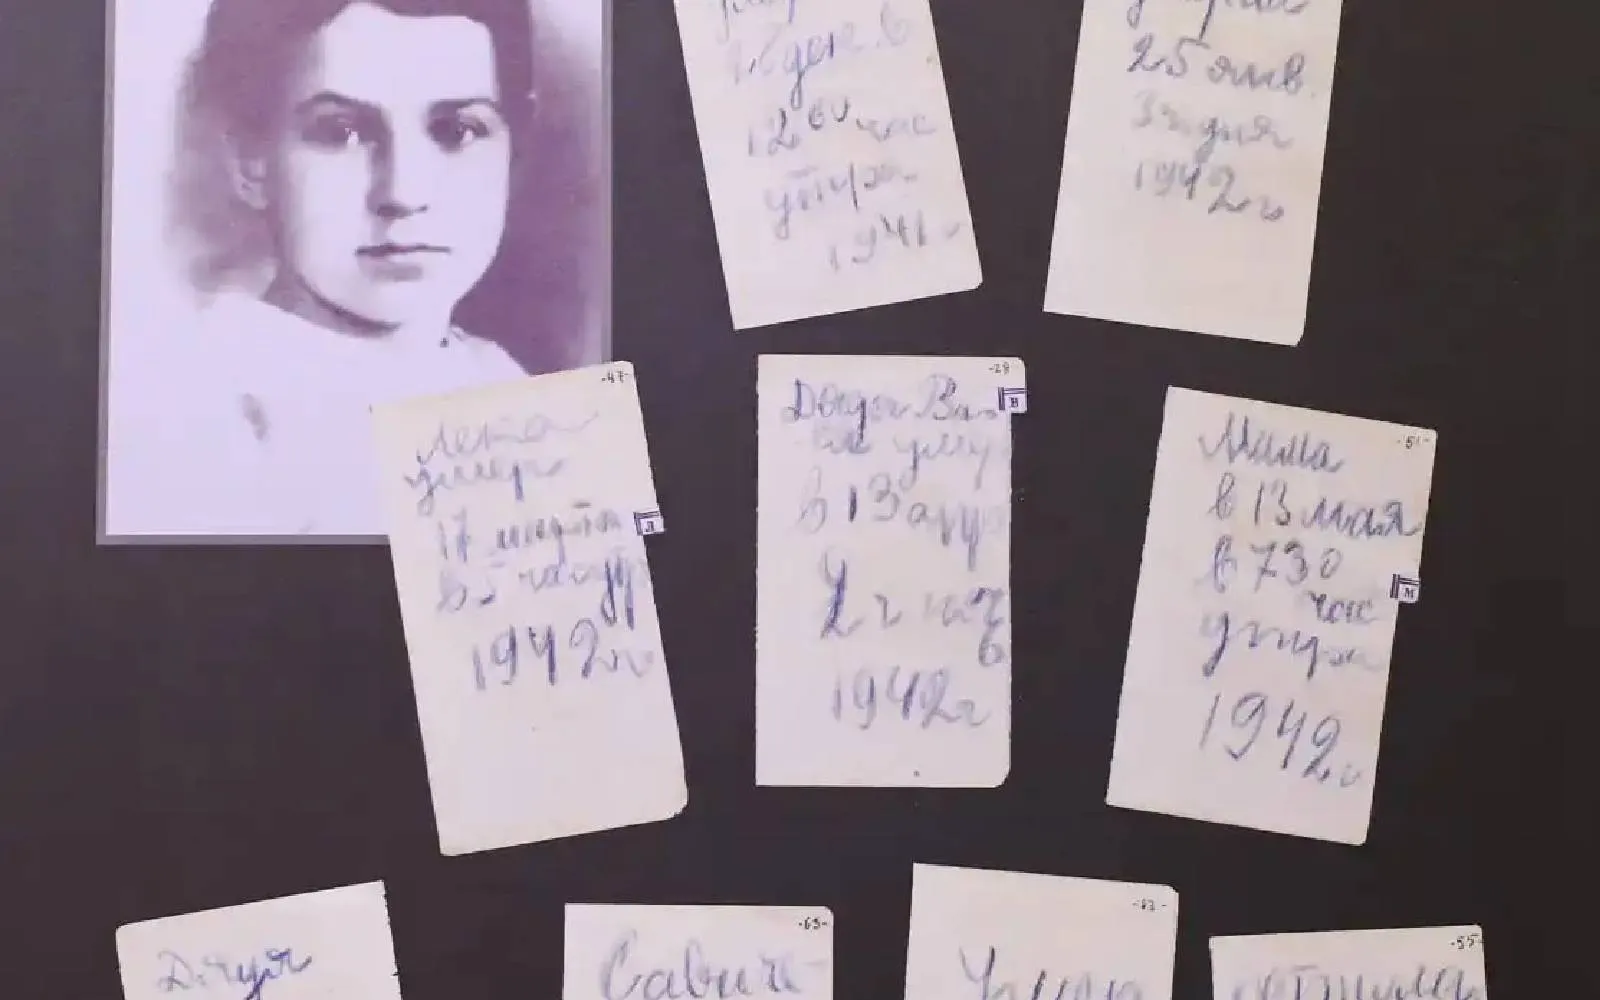 28 дек. в
12 00 час
утра
1941 г
25 янв.
3 ч дня
1942 г
-47-
Лека
умер
17 марта
в 5 час утр
1942 г
Л
-29-
Дядя Вас
в 13 апр
2 ч ноч
1942 г
В
-51-
Мама
в 13 мая
в 730
час
утра
1942 г
М
Дядя
-65-
Савич
-55-